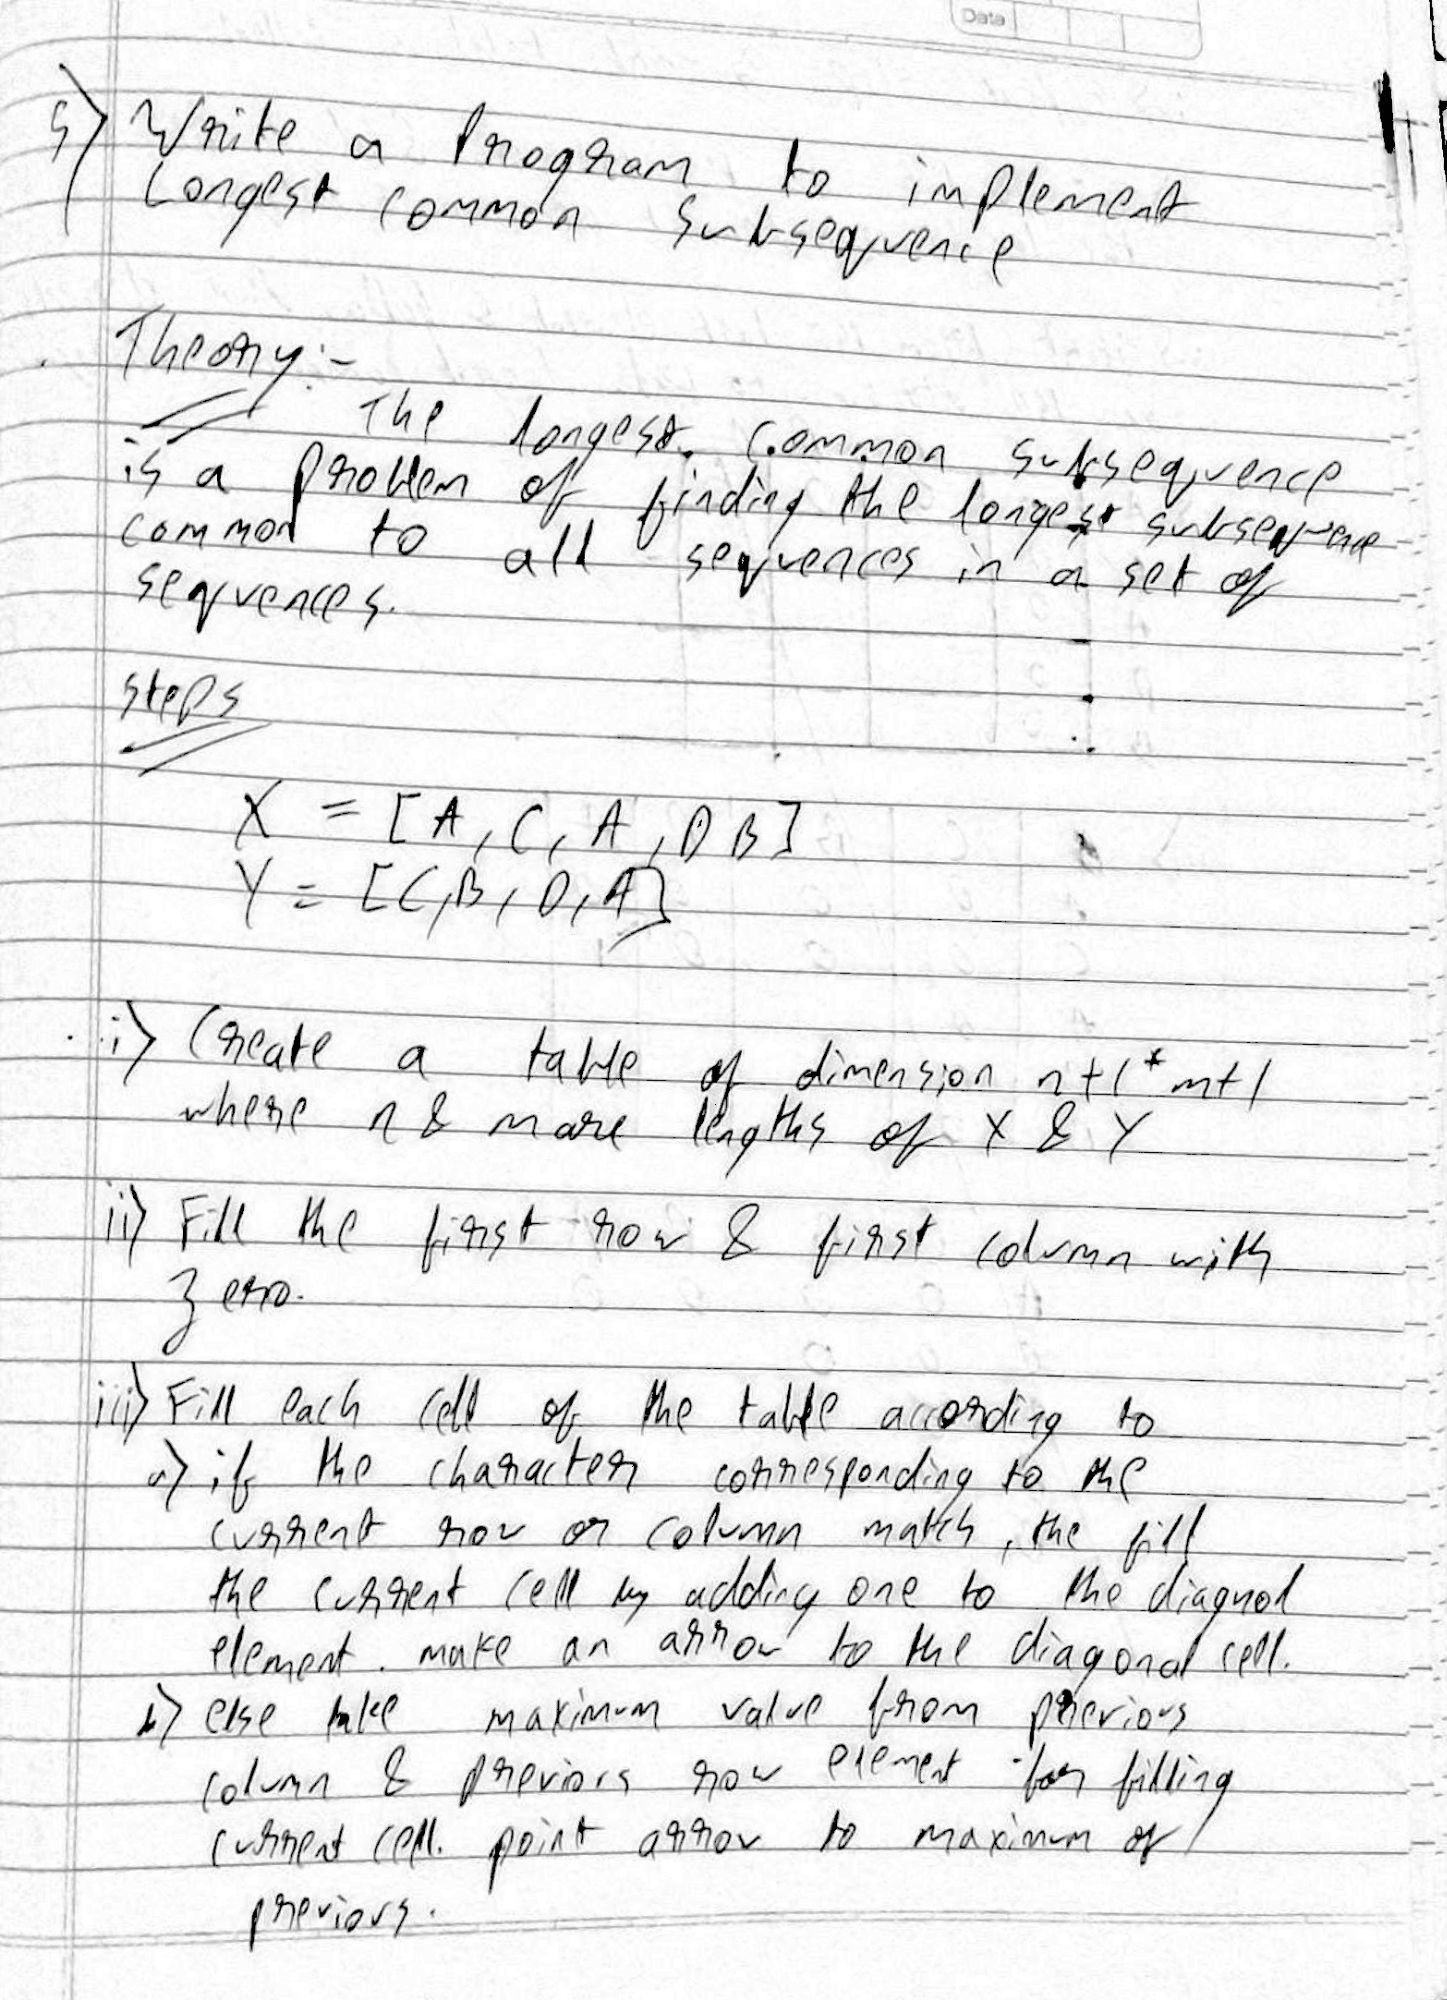 Date
5) Write a Program to implement
Longest Common Subsequence
Theory :-
The longest common subsequence
is a problem of finding the longest subsequence
common to all sequences in a set of
sequences.
Steps
X = [A, C, A, D B]
Y = [C, B, D, A]
i) Create a table of dimension n+1 * m+1
where n & m are lengths of X & Y
ii) Fill the first row & first column with
zero.
iii) Fill each cell of the table according to
a) if the character corresponding to the
current row or column match, the fill
the current cell by adding one to the diagnol
element. make an arrow to the diagonal cell.
b) else take maximum value from previous
column & previous row element for filling
current cell. point arrow to maximum of
previous.